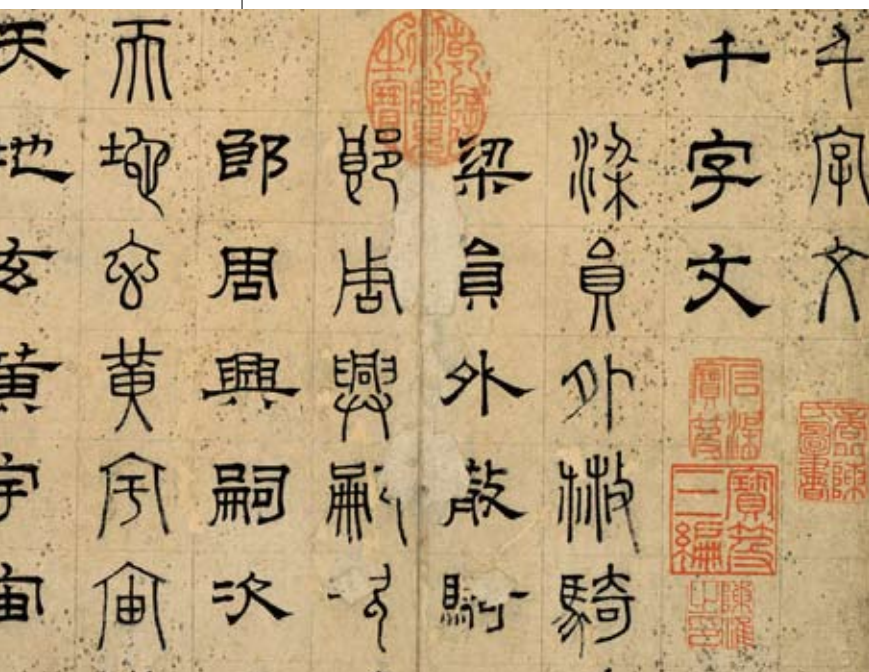 千字文
千字文
梁員外散騎
梁員外散騎
郎周興嗣次
郎周興嗣次
天地玄黃宇宙
天地玄黃宇宙
乾隆御覽之寶
石渠寶笈
寶笈三編